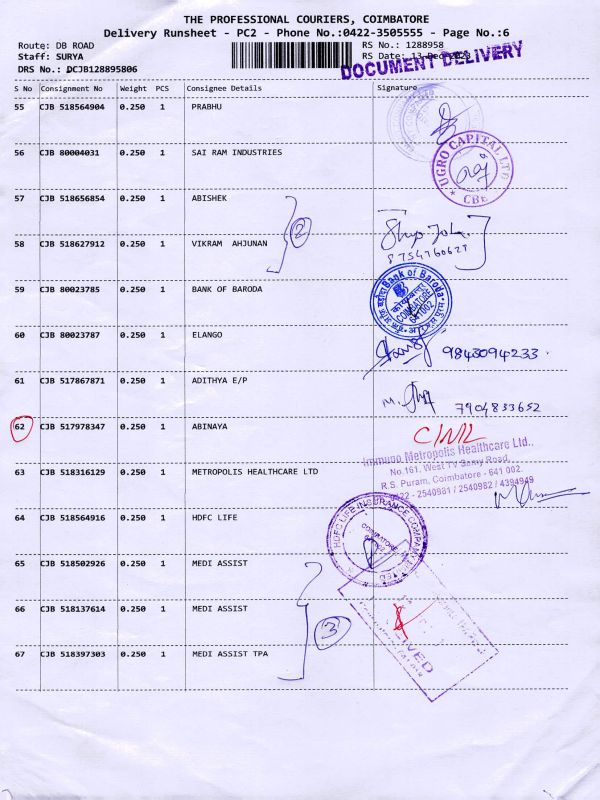 THE PROFESSIONAL COURIERS, COIMBATORE
Delivery Runsheet - PC2 - Phone No.:0422-3505555 - Page No.:6
Route: DB ROAD
RS No.: 1288958
Staff: SURYA
RS Date: 13-Dec-2023
DRS No.: DCJB128895806
DOCUMENT DELIVERY
S No Consignment No Weight PCS Consignee Details Signature
55 CJB 518564904 0.250 1 PRABHU
56 CJB 80004031 0.250 1 SAI RAM INDUSTRIES
UGRO CAPITAL LTD
* CBE *
57 CJB 518656854 0.250 1 ABISHEK
2
58 CJB 518627912 0.250 1 VIKRAM AHJUNAN
8754760627
59 CJB 80023785 0.250 1 BANK OF BARODA
Bank of Baroda
COIMBATORE
641002
60 CJB 80023787 0.250 1 ELANGO
9843094233
61 CJB 517867871 0.250 1 ADITHYA E/P
7904833652
62 CJB 517978347 0.250 1 ABINAYA
Immuno Metropolis Healthcare Ltd.,
No.161, West TV Samy Road,
R.S. Puram, Coimbatore - 641 002.
0422 - 2540981 / 2540982 / 4394949
63 CJB 518316129 0.250 1 METROPOLIS HEALTHCARE LTD
64 CJB 518564916 0.250 1 HDFC LIFE
HDFC LIFE INSURANCE COMPANY LIMITED
COIMBATORE
65 CJB 518502926 0.250 1 MEDI ASSIST
66 CJB 518137614 0.250 1 MEDI ASSIST
3
67 CJB 518397303 0.250 1 MEDI ASSIST TPA